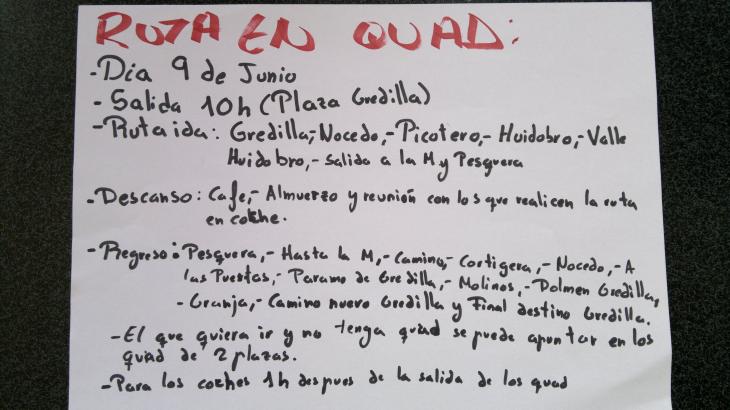 RUTA EN QUAD:
- Dia 9 de Junio
- Salida 10h (Plaza Gredilla)
- Ruta ida: Gredilla,- Nocedo,- Picotero,- Huidobro,- Valle
Huidobro,- Salida a la M y Pesquera
- Descanso: Cafe,- Almuerzo y reunión con los que realicen la ruta
en coche.
- Regreso: Pesquera,- Hasta la M,- Camino,- Cortigera,- Nocedo,- A
las Puestas,- Paramo de Gredilla,- Molinos,- Dolmen Gredilla,
- Granja,- Camino nuevo Gredilla y Final destino Gredilla.
- El que quiera ir y no tenga quad se puede apuntar en los
quad de 2 plazas.
- Para los coches 1h despues de la salida de los quad